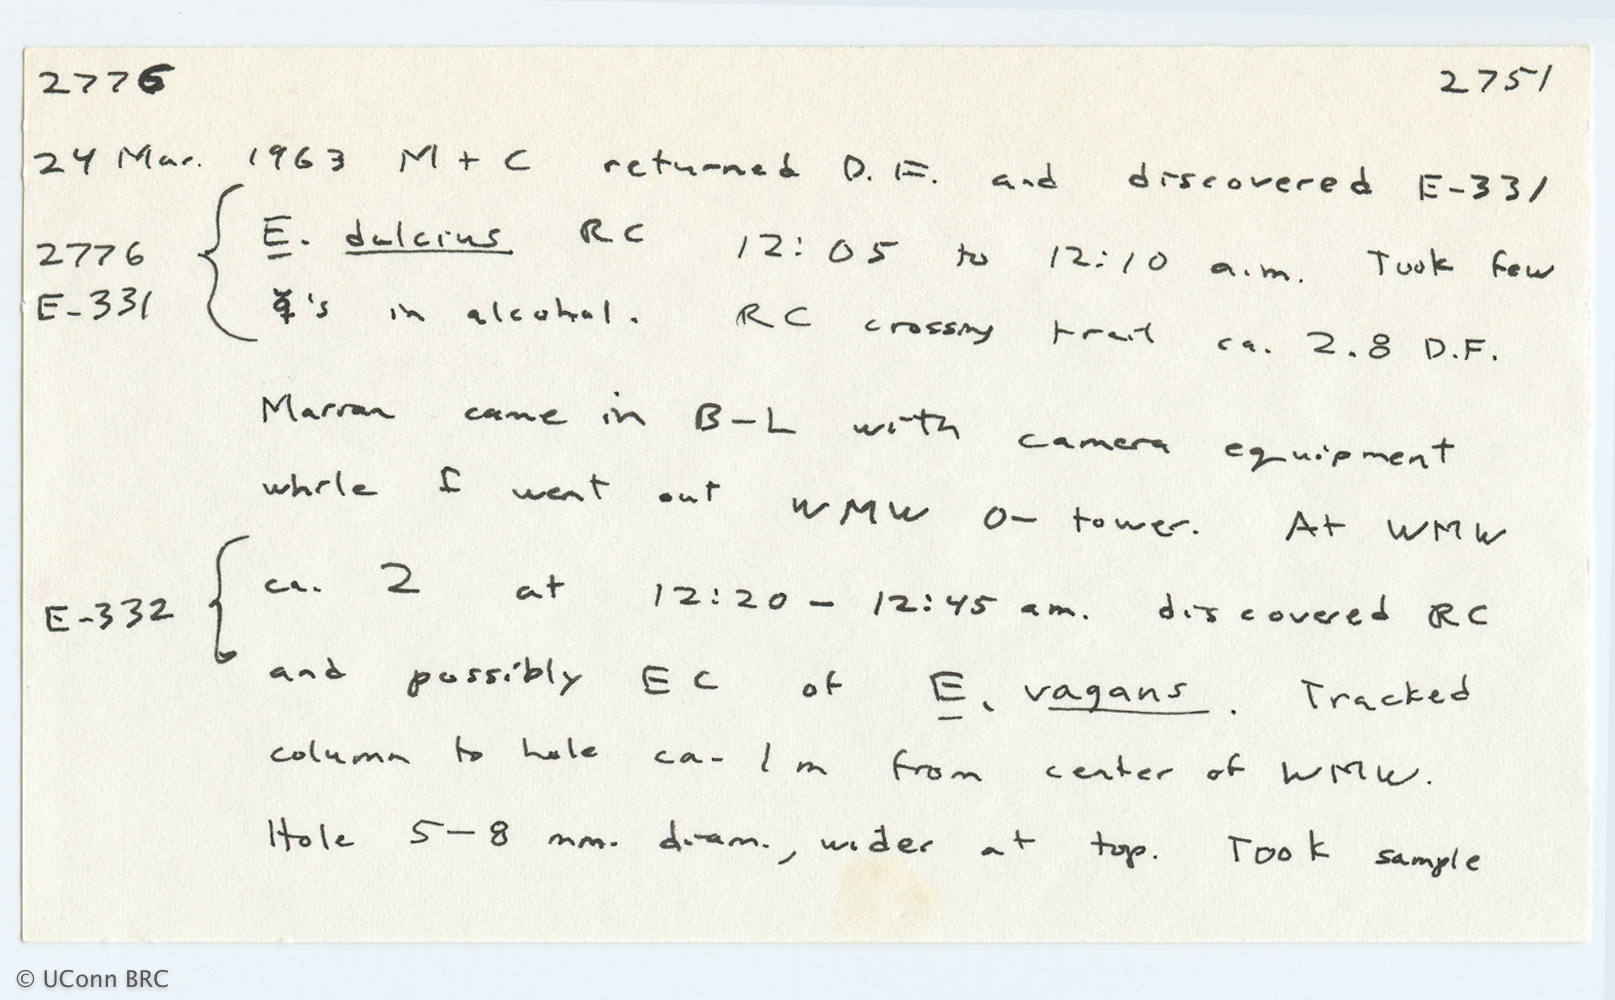 2776 2751
24 Mar. 1963 M + C returned D.F. and discovered E-331
2776 E. dulcius RC 12:05 to 12:10 a.m. Took few
E-331 ☿'s in alcohol. RC crossing trail ca. 2.8 D.F.
Marian came in B-L with camera equipment
while I went out WMW O- tower. At WMW
E-332 ca. 2 at 12:20 - 12:45 am. discovered RC
and possibly EC of E. vagans. Tracked
column to hole ca- 1 m from center of WMW.
Hole 5-8 mm. diam., wider at top. Took sample
© UConn BRC